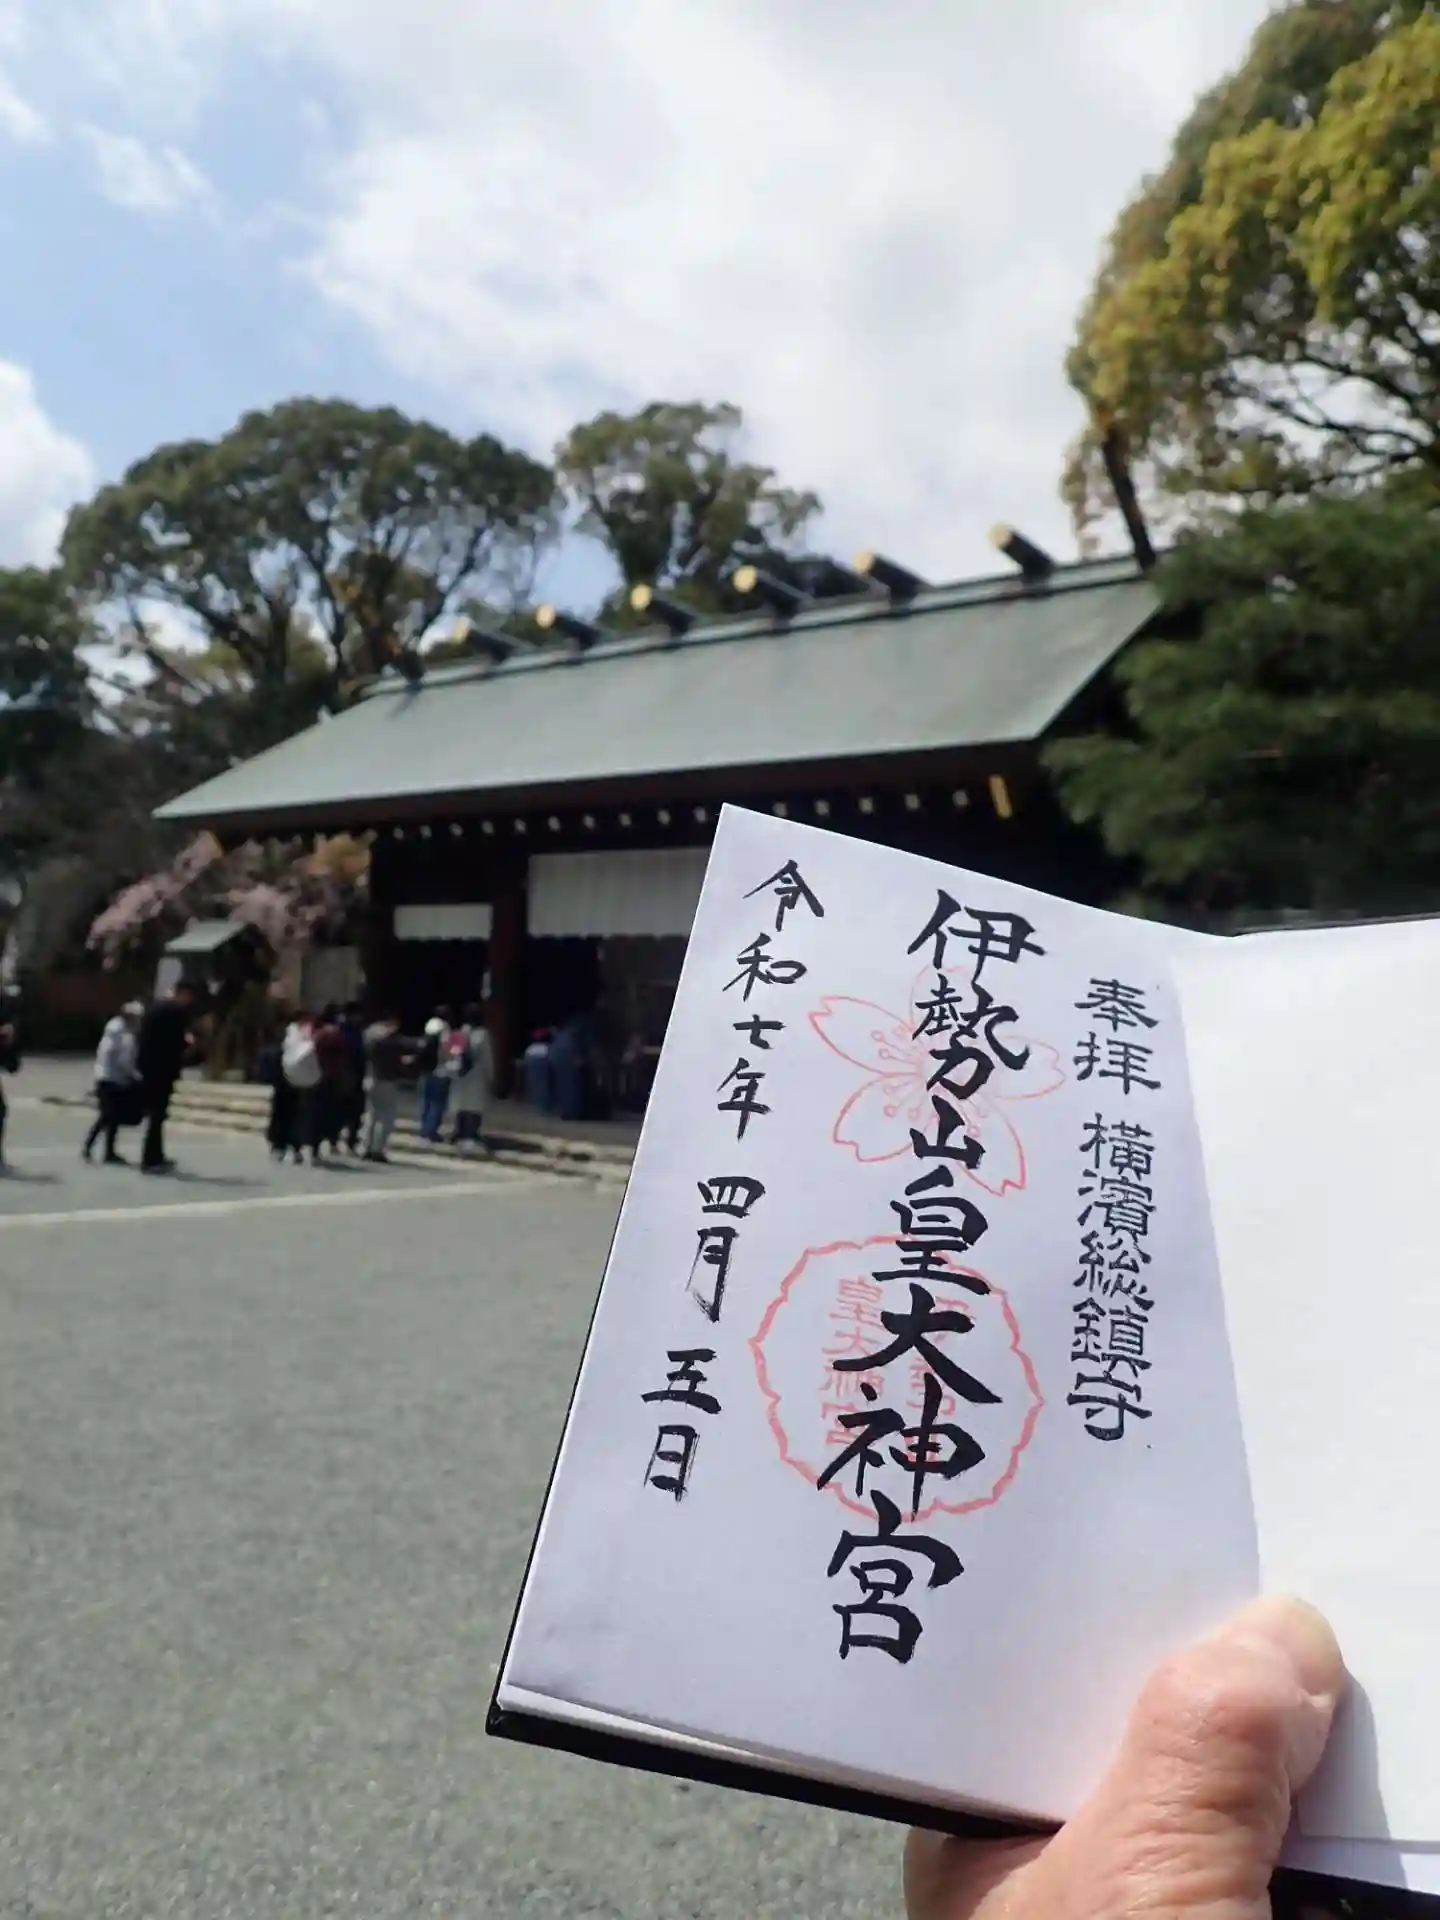 奉拝 横濱総鎮守
伊勢山皇大神宮
皇大神宮
令和七年 四月 五日